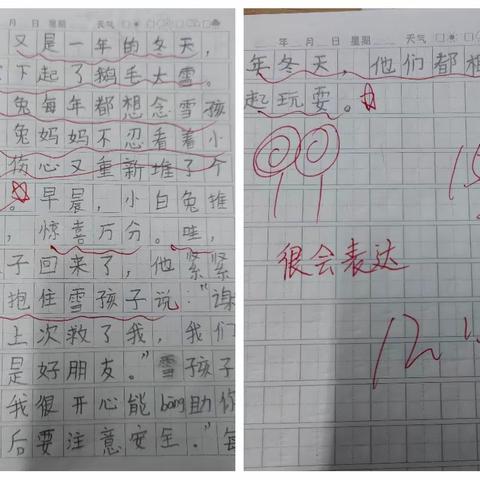 年 月 日 星期 天气
又是一年的冬天，
下起了鹅毛大雪。
兔每年都想念雪孩
兔妈妈不忍看着小
伤心又重新堆了个
。早晨，小白兔推
，惊喜万分。哇，
子回来了，他紧紧
抱住雪孩子说：“谢
上次救了我，我们
是好朋友。”雪孩子
我很开心能bāng助你
后要注意安全。”每
年 月 日 星期 天气
年冬天，他们都相
起玩耍。
很会表达